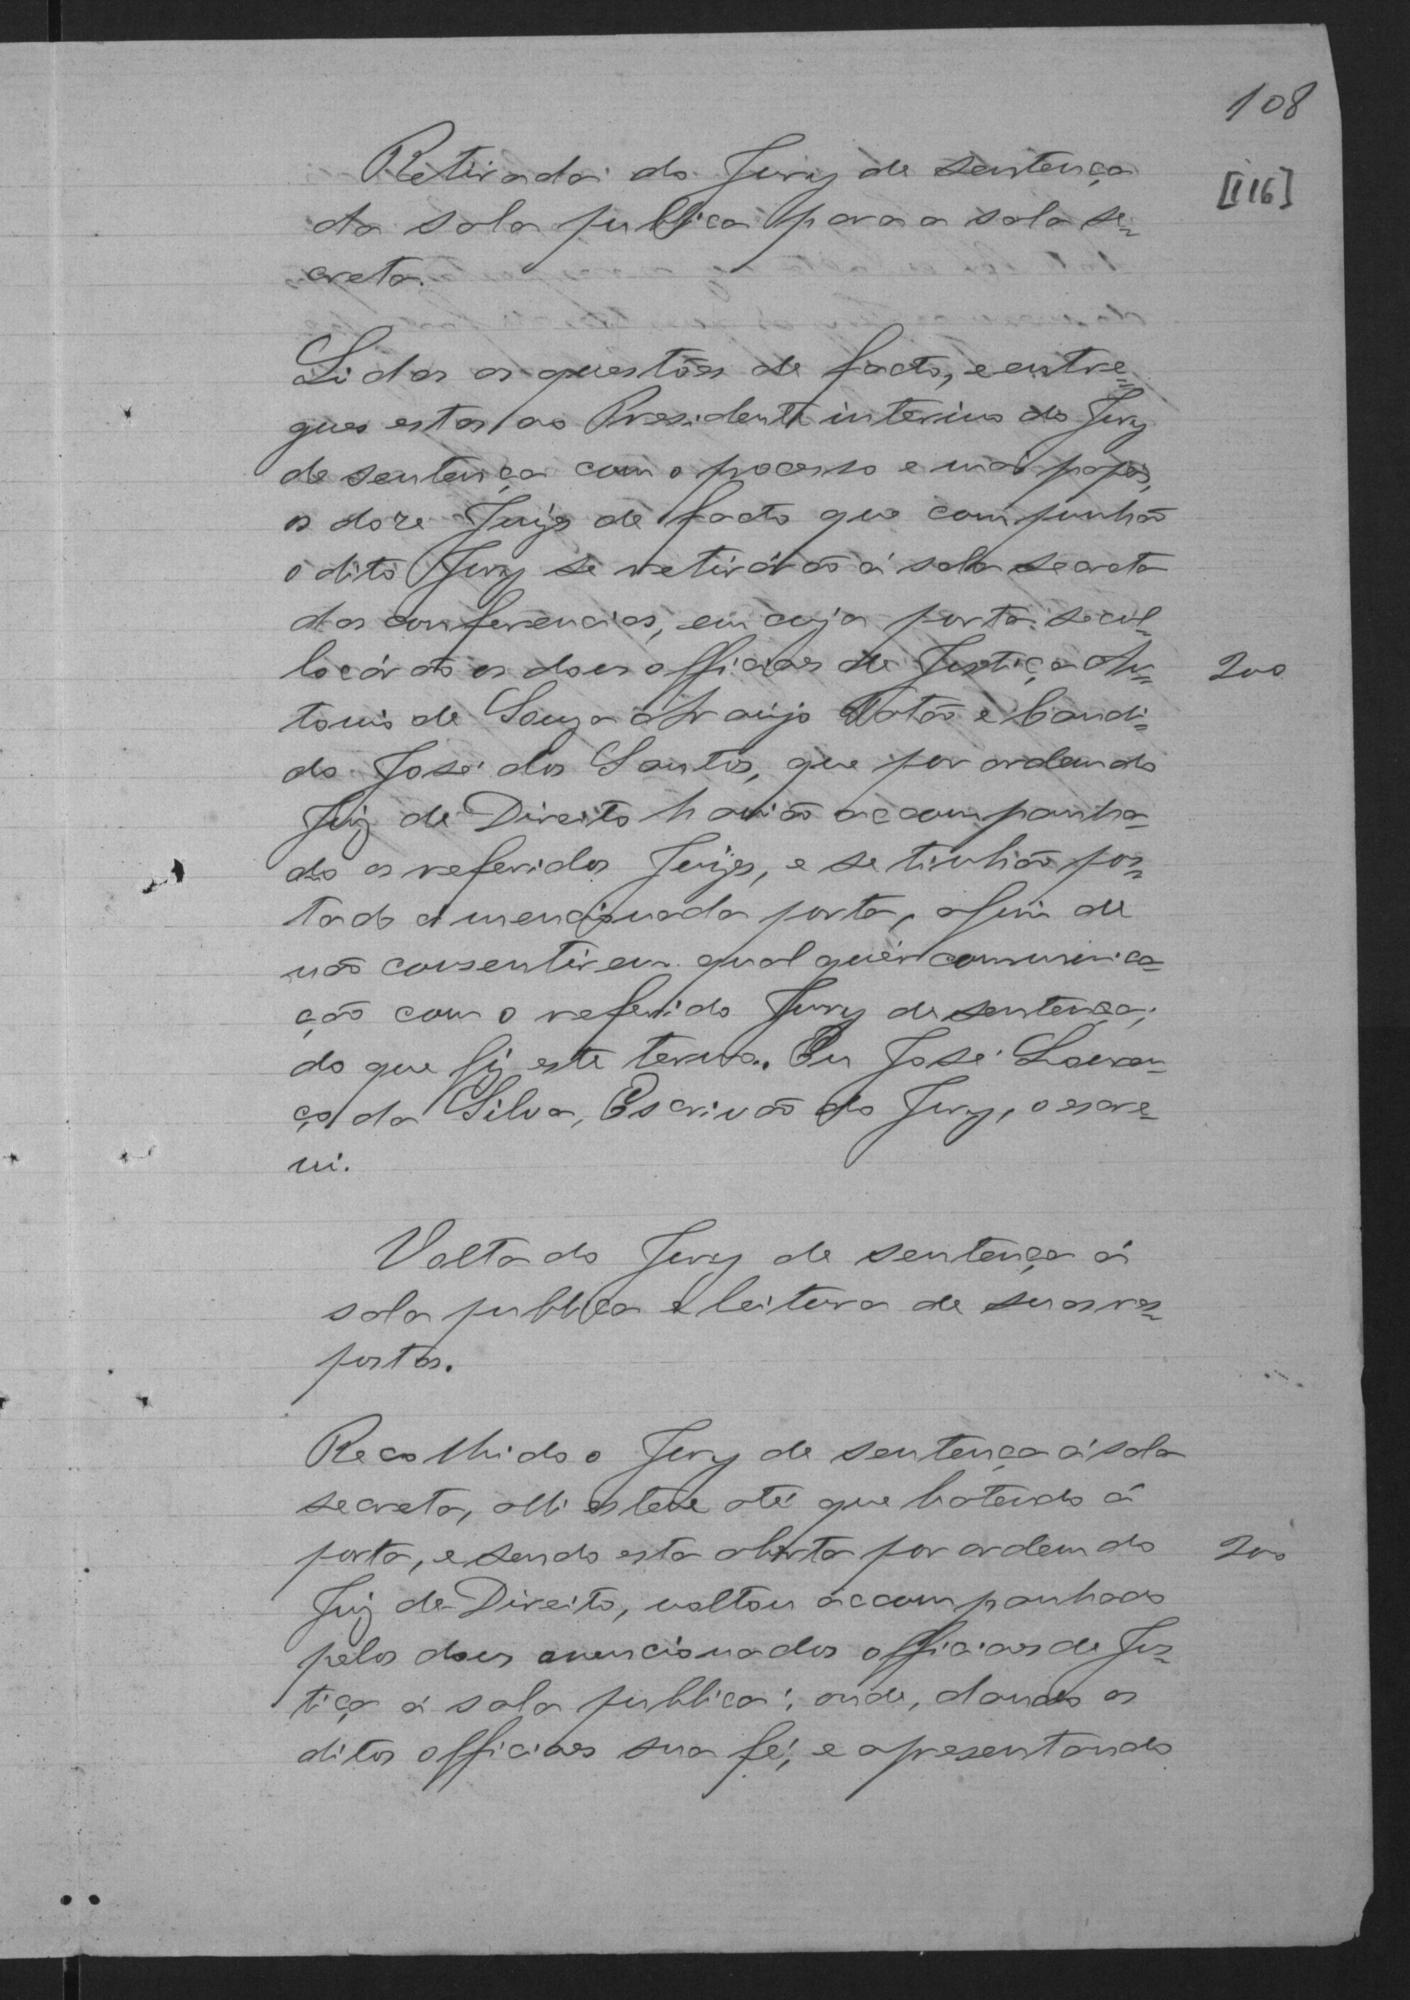 108
[116]
Retirada do Jury de sentença
da sala publica para a sala se=
creta.
Lidas as questões de facto, e entre=
gues estas ao Presidente interino do Jury
de sentença com o processo e mais papeis,
os doze Juizes de facto que compunhão
o dito Jury se retirárão á sala secreta
das conferencias, em cuja porta se col=
locárão os dous officiaes de Justiça An=
200
tonio de Souza Araujo Catão e Candi=
do José dos Santos, que por ordem do
Juiz de Direito havião accompanha=
do os referidos Juizes, e se tinhão pos=
tado á mencionada porta, afim de
não consentirem qualquér communica=
ção com o referido Jury de sentença;
do que fiz este termo. Eu José Louren=
ço da Silva, Escrivão do Jury, o escre=
vi.
Volta do Jury de sentença á
sala publica e leitura de suas res=
postas.
Recolhido o Jury de sentença á sala
secreta, alli esteve até que batendo á
porta, e sendo esta aberta por ordem do
200
Juiz de Direito, voltou accompanhado
pelos dous mencionados officiaes de Jus=
tiça á sala publica; onde, dando os
ditos officiaes sua fé, e apresentando